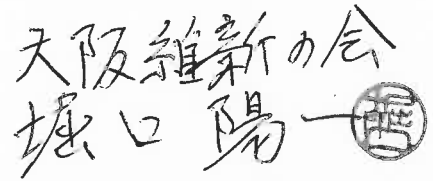 大阪維新の会
堀口 陽一